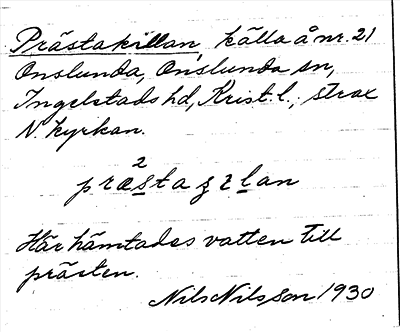 Prästakillan, källa å nr. 21
Onslunda, Onslunda sn,
Ingelstads hd, Krist. l.; strax
N. kyrkan.
2
præstaʒɩlan
Här hämtades vatten till
prästen.
Nils Nilsson 1930